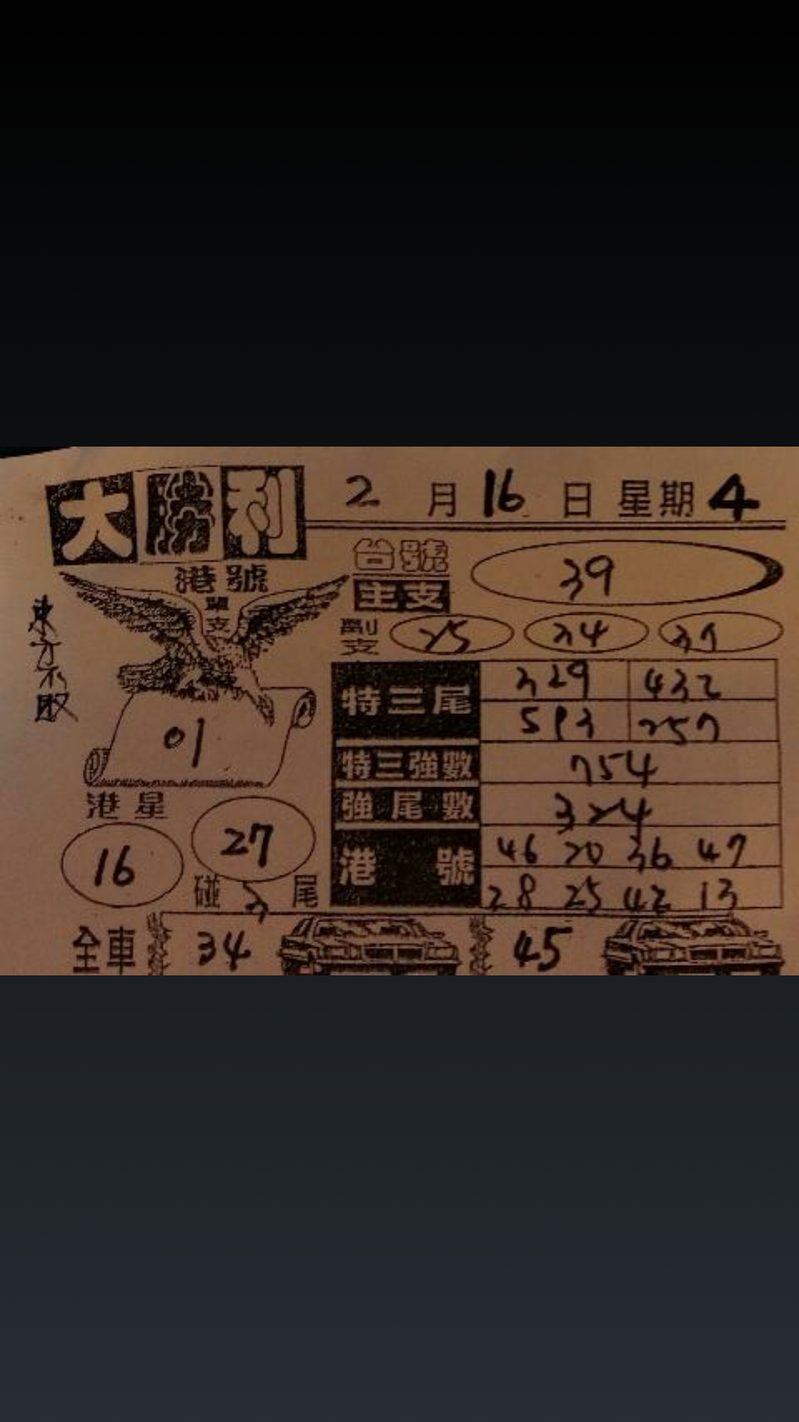 大勝利 2月16日 星期4
港號
單支
01
東方不敗
港星
16 27
台號
主支 39
副支 25 24
特三尾 329 432
593 257
特三強數 754
強尾數 324
港號 46 20 36 47
28 25 42 13
碰 尾
全車 34 45